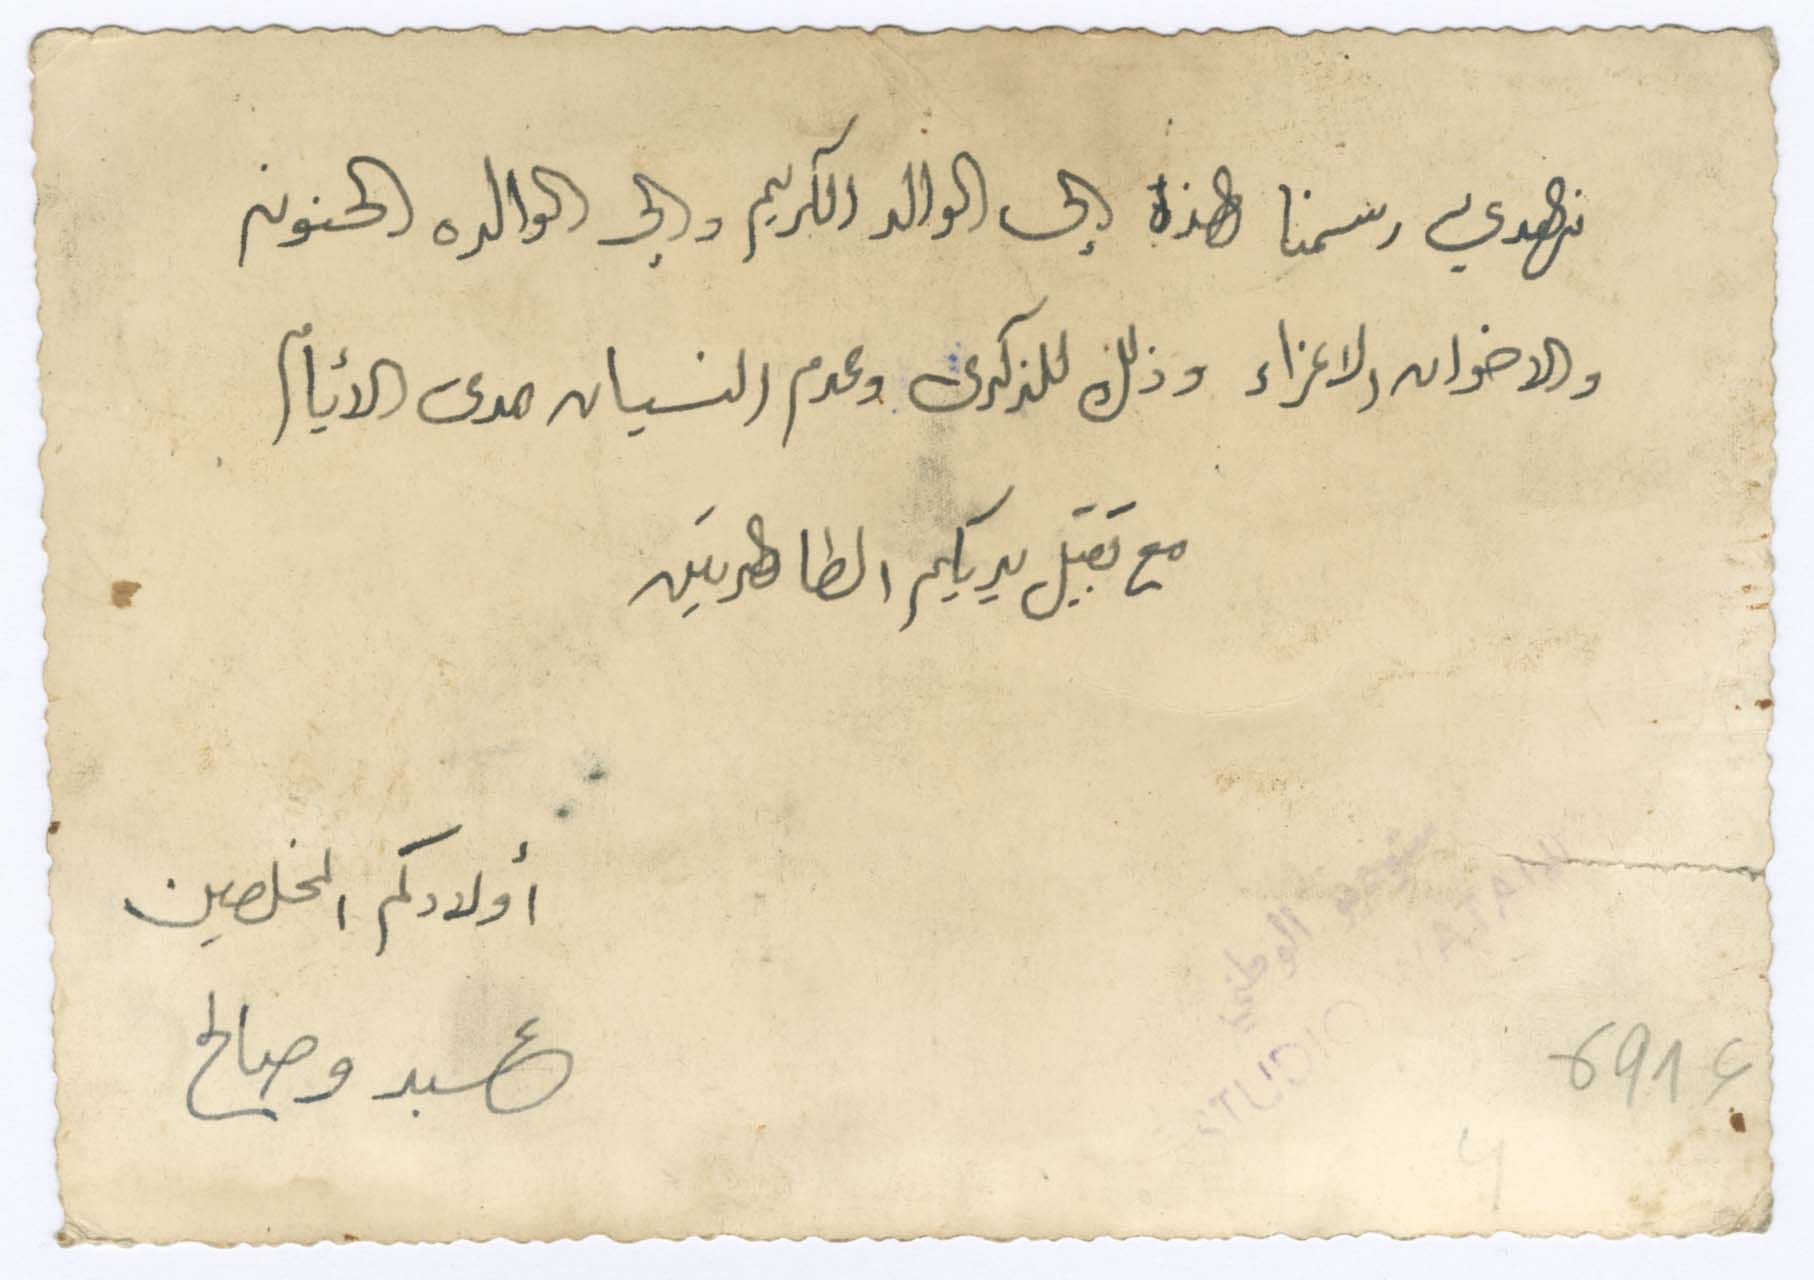 نهدي رسمنا هذه إلى الوالد الكريم وإلى الوالده الحنونه
والاخوان الاعزاء وذلك للذكرى وعدم النسيان مدى الأيام
مع تقبيل يديكم الطاهرتين
أولادكم المخلصين
وصالح
ستوديو الوطني
STUDIO WATANI